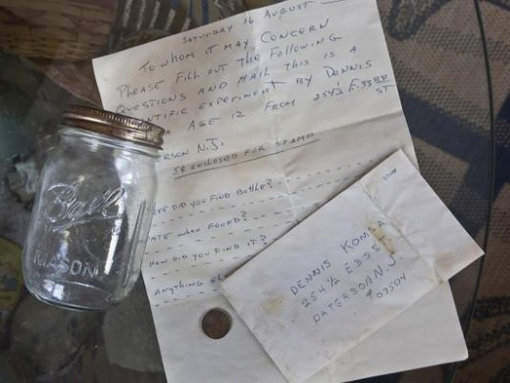 SATURDAY 16 AUGUST
TO WHOM IT MAY CONCERN
PLEASE FILL OUT THE FOLLOWING
QUESTIONS AND MAIL THIS IS A
ENTIFIC EXPERIMENT BY DENNIS
AGE 12 FROM 254½ ST
ERSON N.J.
5¢ ENCLOSED FOR STAMP
DID YOU FIND BOTTLE?
ATE WHEN FOUND?
HOW DID YOU FIND IT?
ANYTHING
Ball
MASON
STAMP
DENNIS KOMSA
254½
PATERSON N.J.
07504